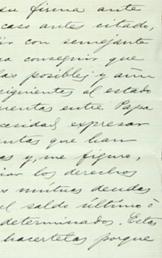 su firma ante
caso antes citado,
ir con semejante
a conseguir que
as posibles; y aún
siguientes el estado
mentos entre Papa
casidad, expresar
ntas que han
as y, me figuro,
iar los derechos
s mútuas deudas
el saldo último ó
determinados. Estas
hacertelas porque